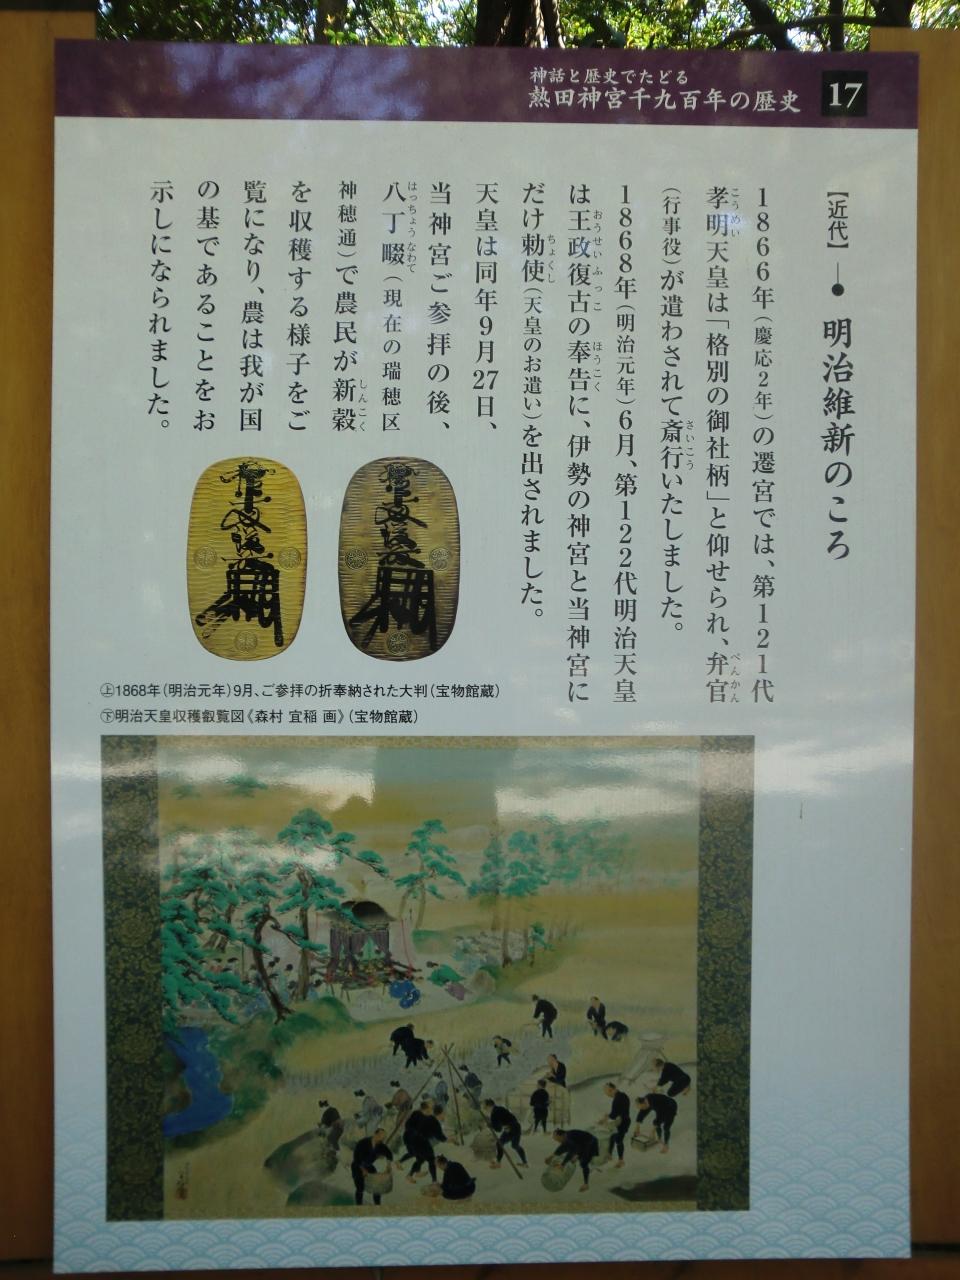 神話と歴史でたどる
熱田神宮千九百年の歴史
17
【近代】―● 明治維新のころ
1866年(慶応2年)の遷宮では、第121代
孝明天皇は「格別の御社柄」と仰せられ、弁官
(行事役)が遣わされて斎行いたしました。
1868年(明治元年)6月、第122代明治天皇
は王政復古の奉告に、伊勢の神宮と当神宮に
だけ勅使(天皇のお遣い)を出されました。
天皇は同年9月27日、
当神宮ご参拝の後、
八丁畷(現在の瑞穂区
神穂通)で農民が新穀
を収穫する様子をご
覧になり、農は我が国
の基であることをお
示しになられました。
こうめい
べんかん
さいこう
おうせいふっこ
ほうこく
ちょくし
はっちょうなわて
しんこく
㊤1868年(明治元年)9月、ご参拝の折奉納された大判(宝物館蔵)
㊦明治天皇収穫叡覧図《森村 宜稲 画》(宝物館蔵)